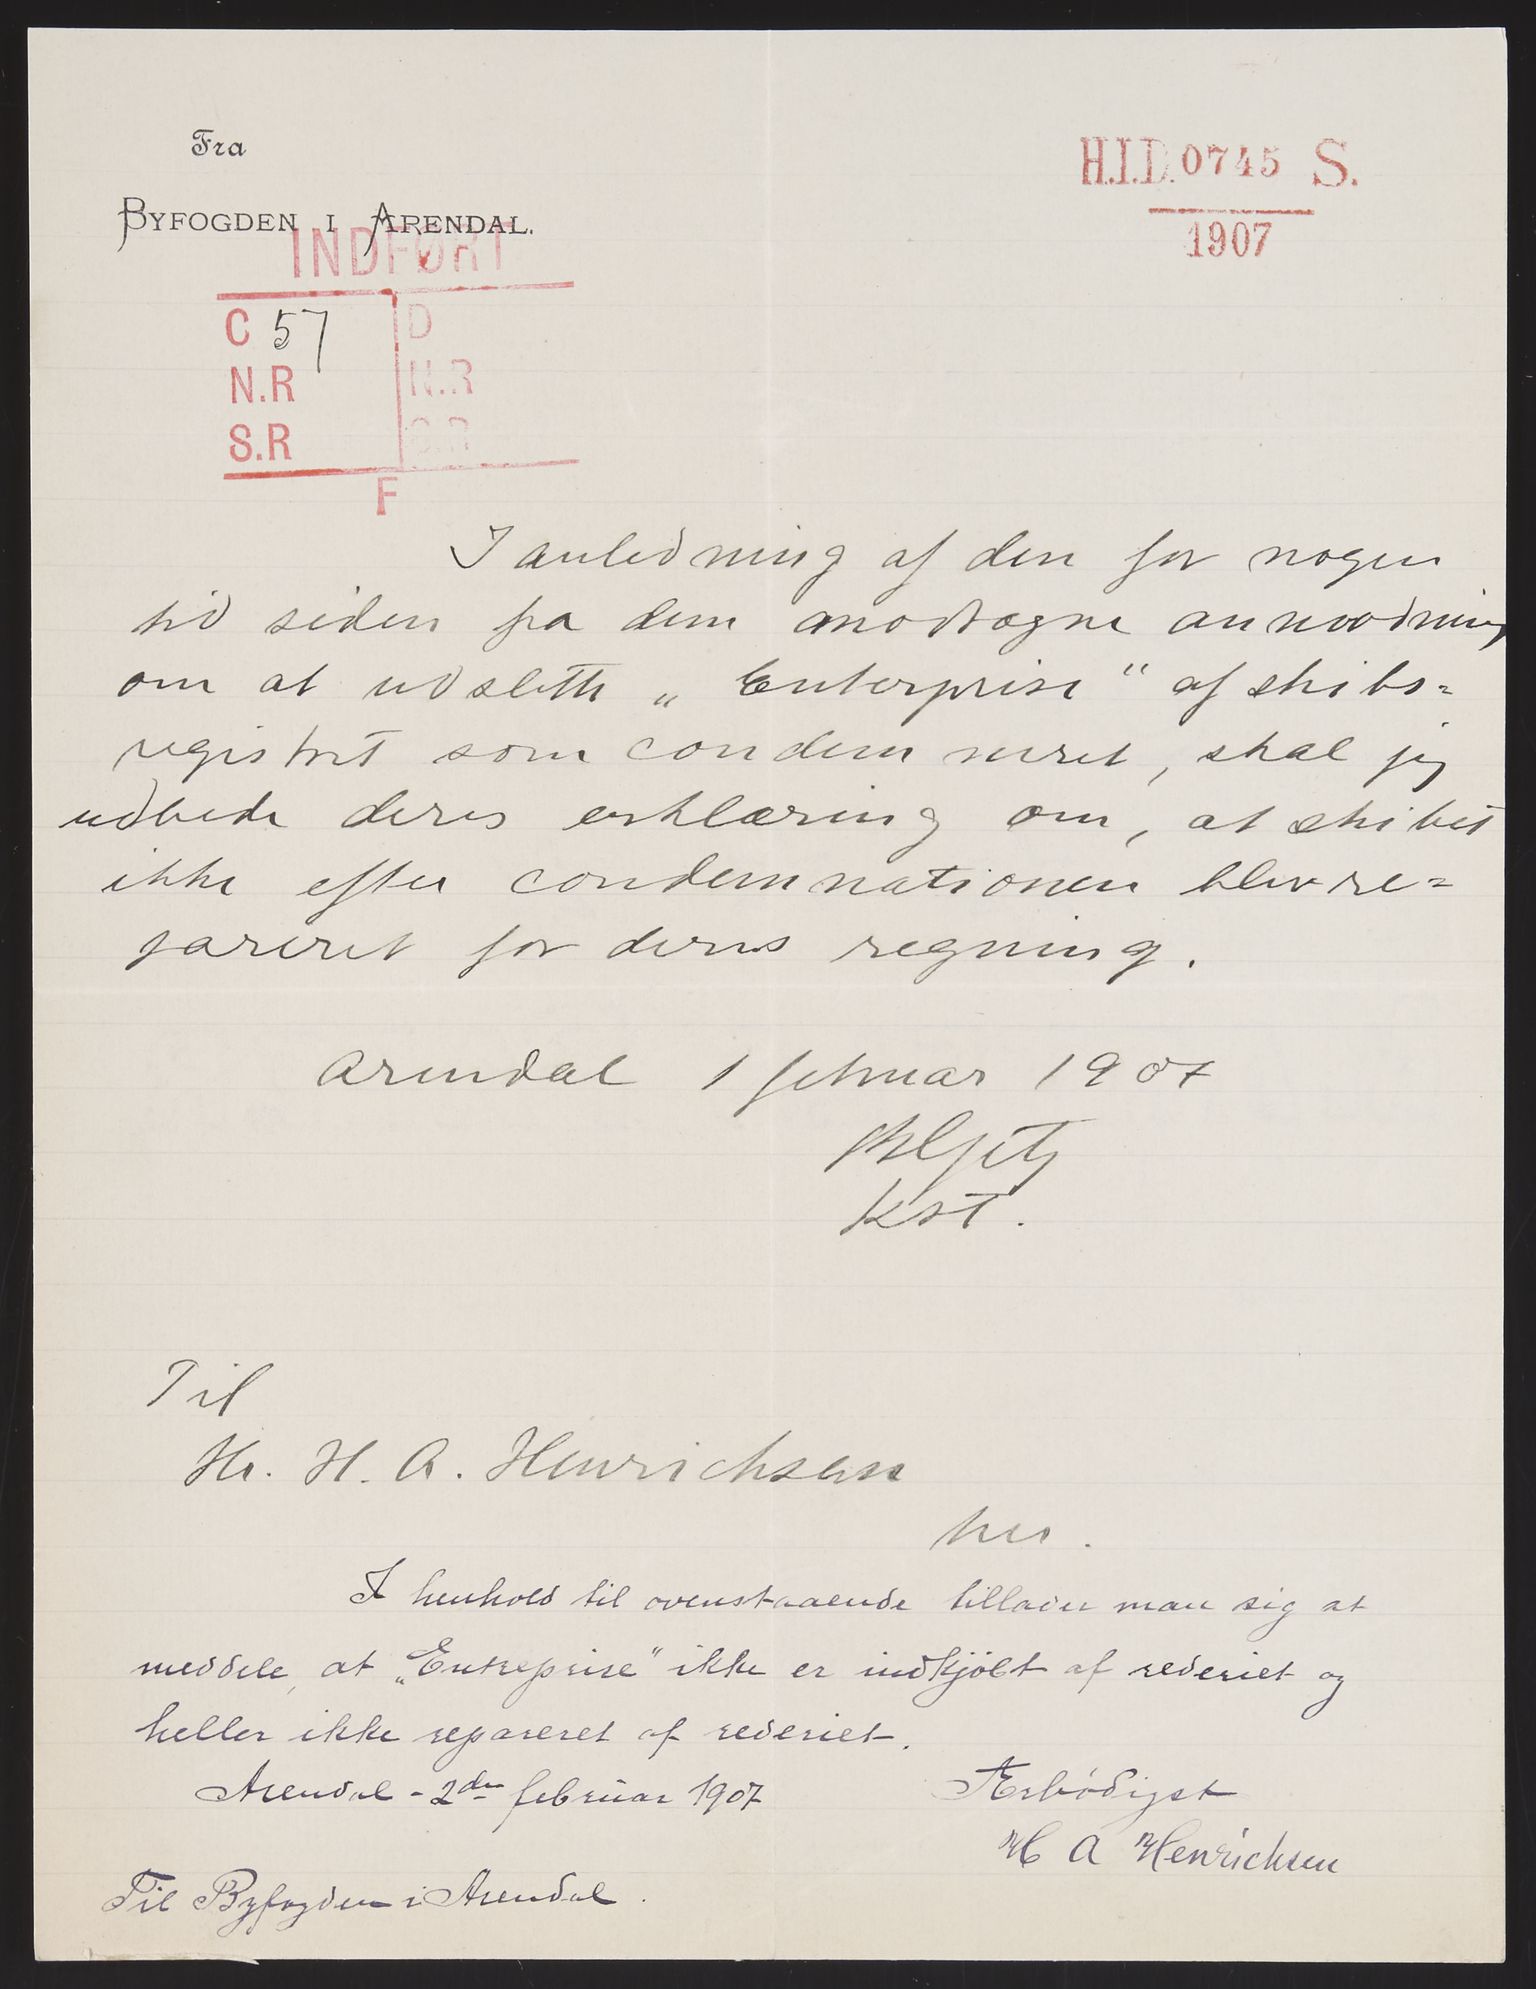 Fra
BYFOGDEN I ARENDAL.
H.I.D. 0745 S.
1907
INDFØRT
C 57 D
N.R N.R
S.R S.R
F
I anledning af den for nogen
tid siden fra dem modtagne anmodning
om at udslette „Enterprise“ af skibs=
registret som condemneret, skal jeg
udbede deres erklæring om, at skibet
ikke efter condemnationen blev re=
pareret for deres regning.
Arendal 1 februar 1907
Kst.
Til
Hr. H. A. Henrichsen
her.
I henhold til ovenstaaende tillader man sig at
meddele, at „Entreprise“ ikke er indkjöbt af rederiet og
heller ikke repareret af rederiet.
Arendal - 2den februar 1907
Ærbödigst
H A Henrichsen
Til Byfogden i Arendal.